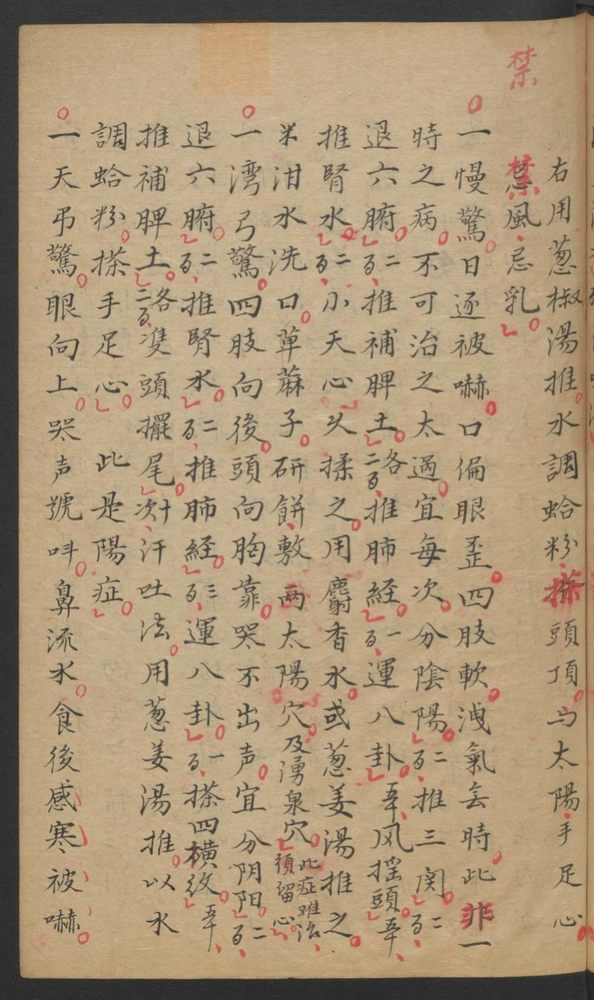 右用葱椒湯推水調蛤粉搽頭頂与太陽手足心
禁
忌風忌乳
一慢驚日逐被嚇口偏眼歪四肢軟洩氣無時此非一
時之病不可治之太過宜每次分陰陽二百推三関二百
退六腑二百推補脾土各二百推肺經一百運八卦五十風搖頭五十
推腎水二百小天心久揉之用麝香水或葱姜湯推之
米泔水洗口草蔴子研餅敷两太陽穴及湧泉穴此症难治須留心
一湾弓驚四肢向後頭向胸靠哭不出声宜分阴阳二百
退六腑二百推腎水二百推肺經三百運八卦一百搽四横紋五十
推補脾土各二百雙頭擺尾汗吐法用葱姜湯推以水
調蛤粉搽手足心此是陽症
一天弔驚眼向上哭声號呌鼻流水食後感寒被嚇